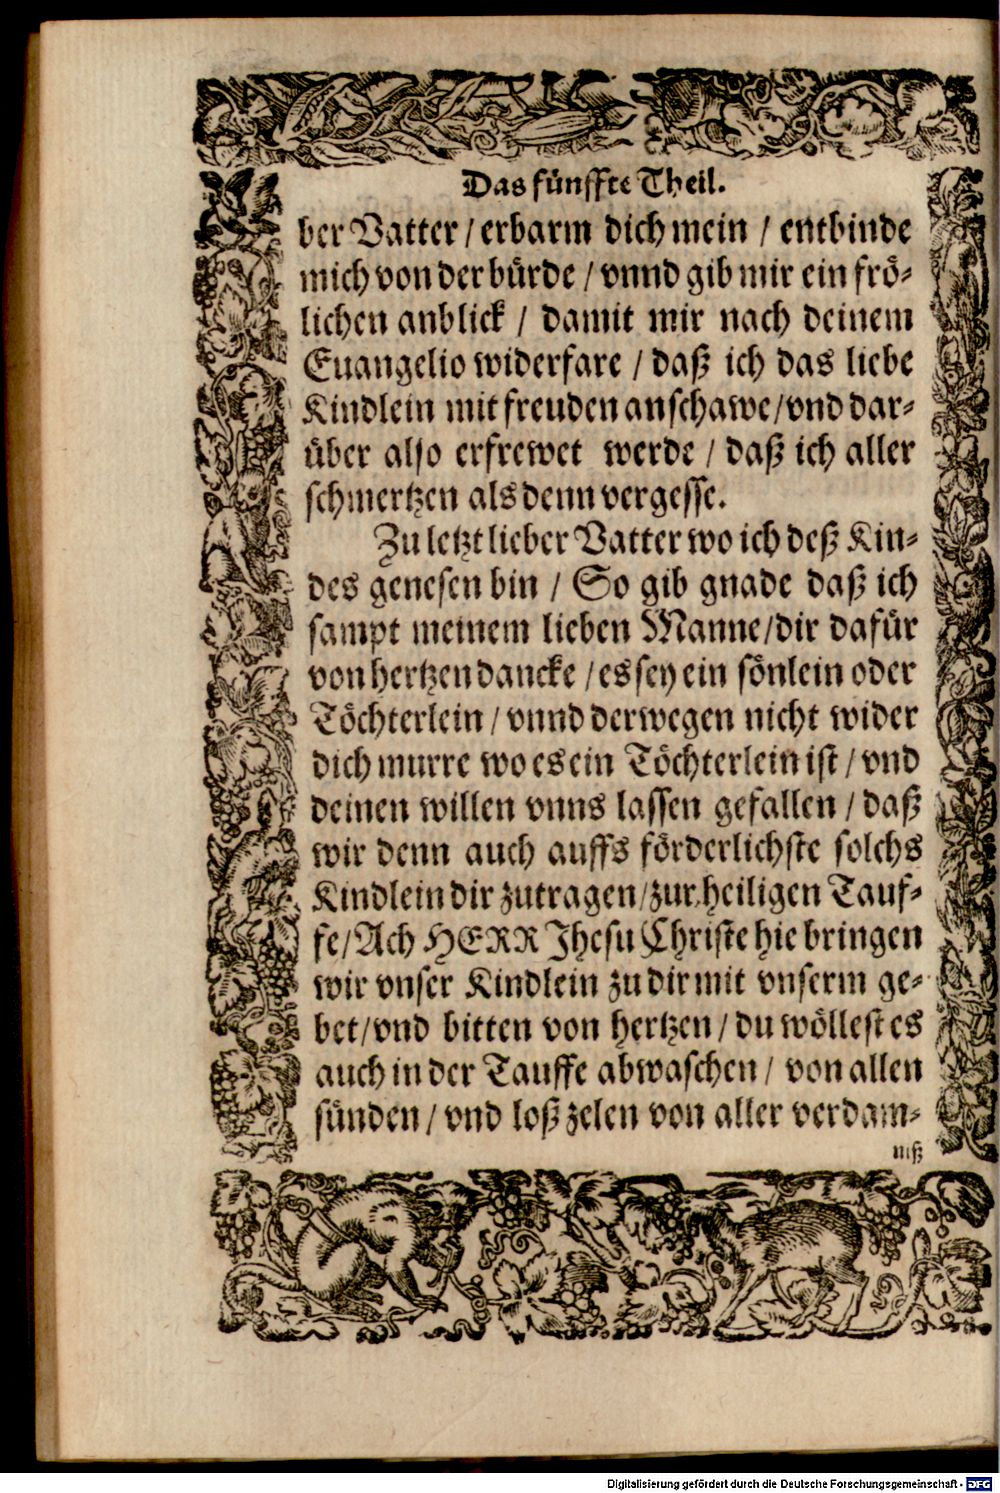 Das fünffte Theil.
ber Vatter / erbarm dich mein / entbinde
mich von der bürde / vnnd gib mir ein frö-
lichen anblick / damit mir nach deinem
Euangelio widerfare / daß ich das liebe
Kindlein mit freuden anschawe / vnd dar-
über also erfrewet werde / daß ich aller
schmertzen als denn vergesse.
Zu letzt lieber Vatter wo ich deß Kin-
des genesen bin / So gib gnade daß ich
sampt meinem lieben Manne / dir dafür
von hertzen dancke / es sey ein sönlein oder
Töchterlein / vnnd derwegen nicht wider
dich murre wo es ein Töchterlein ist / vnd
deinen willen vnns lassen gefallen / daß
wir denn auch auffs förderlichste solchs
Kindlein dir zutragen / zur heiligen Tauf-
fe / Ach HERR Jhesu Christe hie bringen
wir vnser Kindlein zu dir mit vnserm ge-
bet / vnd bitten von hertzen / du wöllest es
auch in der Tauffe abwaschen / von allen
sünden / vnd loß zelen von aller verdam-
niß
Digitalisierung gefördert durch die Deutsche Forschungsgemeinschaft - DFG